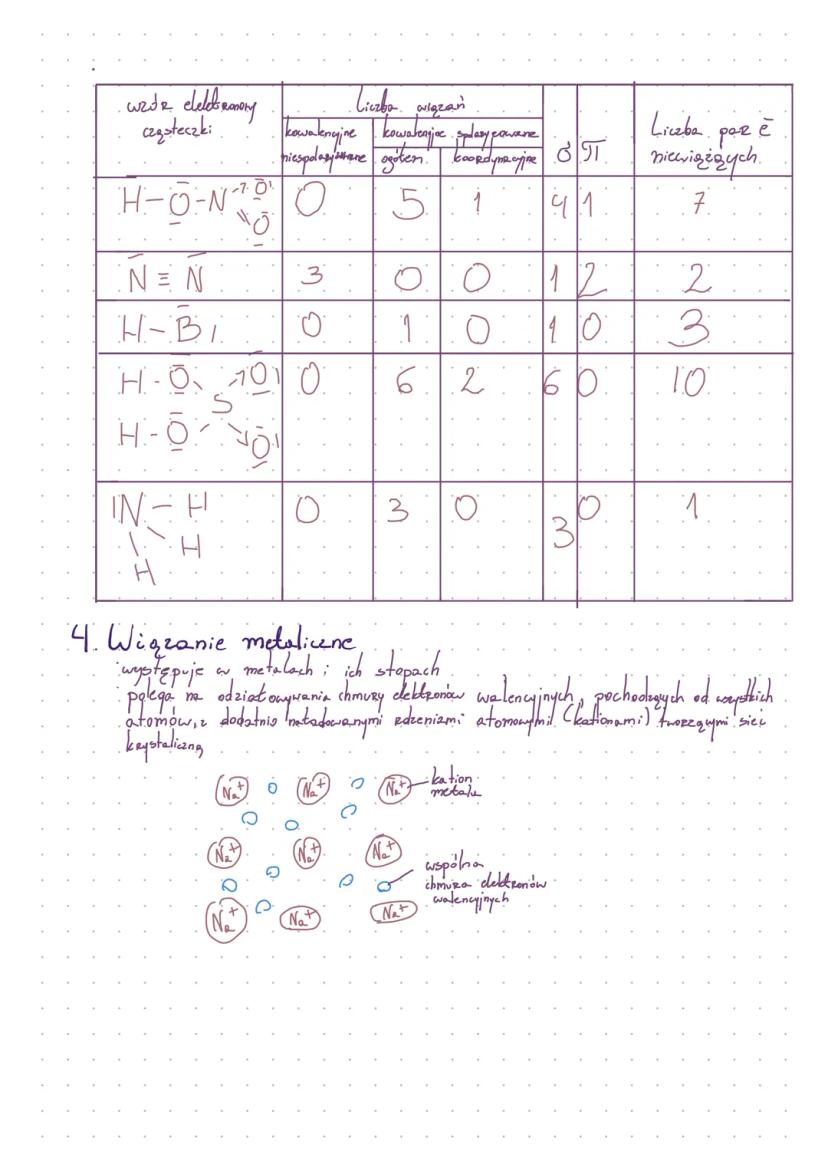 wzór elektronowy cząsteczki
Liczba wiązań
kowalencyjne niespolaryzowane
kowalencyjne spolaryzowane
ogółem
koordynacyjne
σ
π
Liczba par ē niewiążących
H-O-N→O O 0 5 1 4 1 7
N≡N 3 0 0 1 2 2
H-Br 0 1 0 1 0 3
H-O O 0 6 2 6 0 10
S
H-O O
N-H 0 3 0 3 0 1
H
H
4. Wiązanie metaliczne
występuje w metalach i ich stopach
polega na odziaływania chmury elektronów walencyjnych, pochodzących od wszystkich
atomów, z dodatnio naładowanymi rdzeniami atomowymi (kationami) tworzącymi sieć
krystaliczną
Na⁺ Na⁺ Na⁺ kation
metalu
Na⁺ Na⁺ Na⁺
wspólna
chmura elektronów
walencyjnych
Na⁺ Na⁺ Na⁺